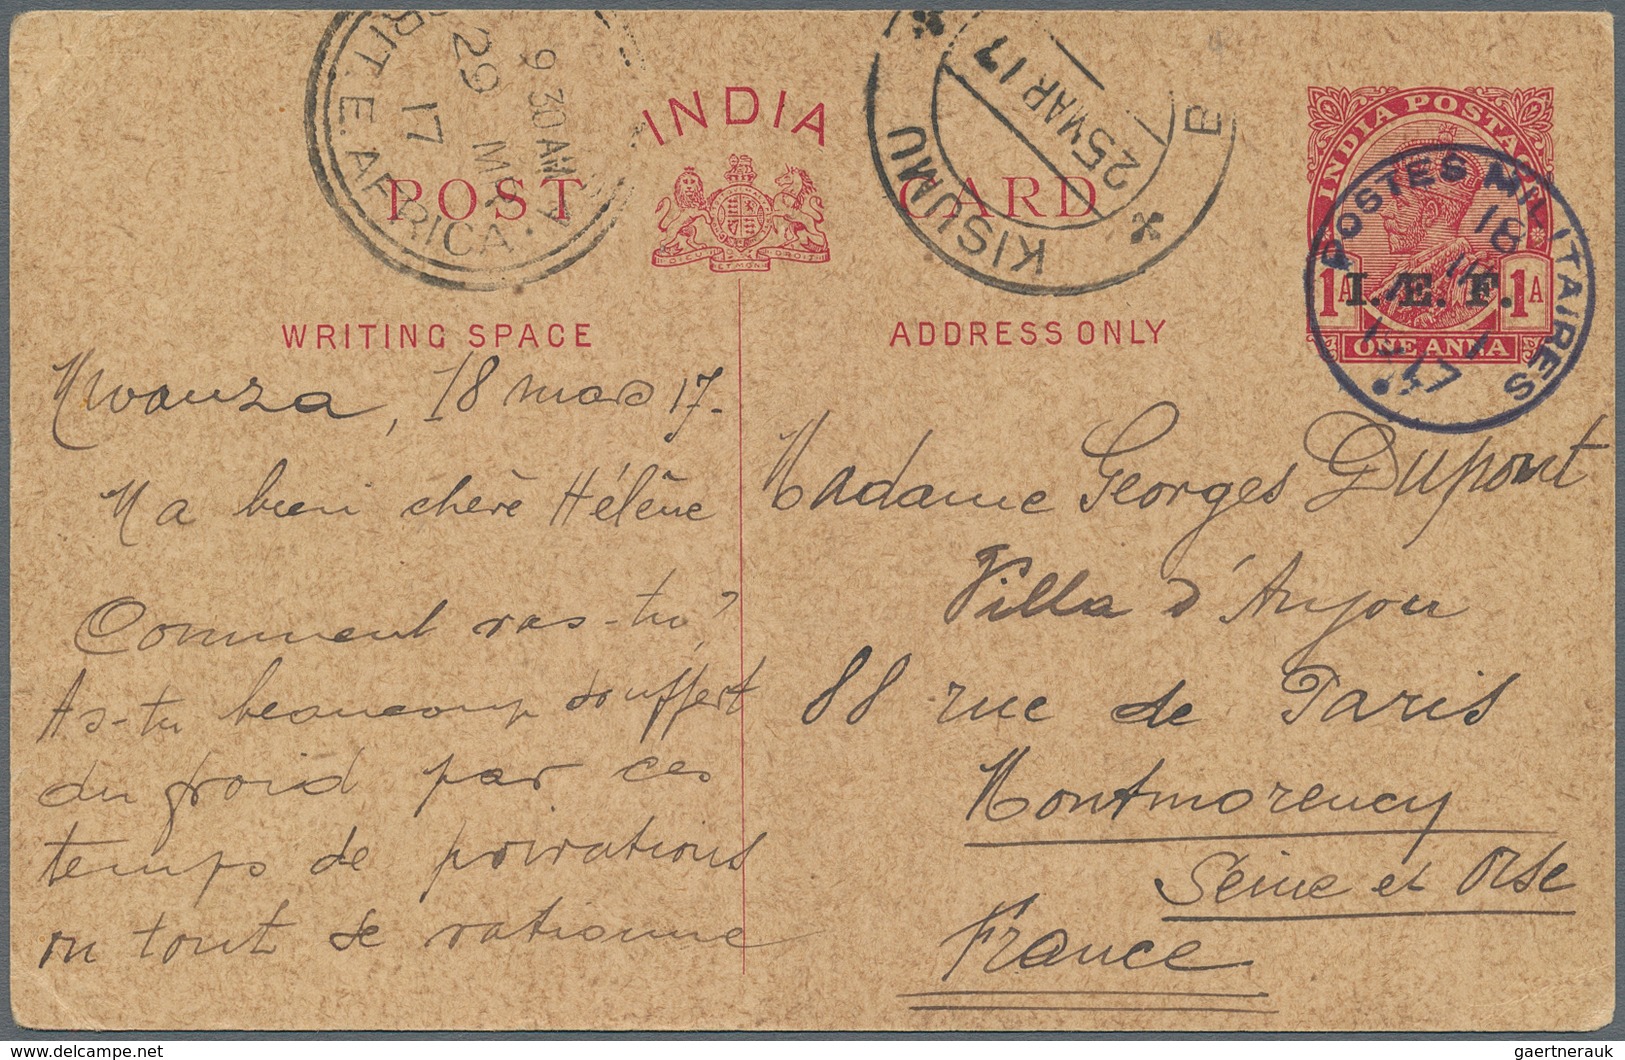 BRIT. E. AFRICA. A
9 30 AM
29 MR
17
KISUMU
25 MAR 17
B
INDIA
POST CARD
INDIA POSTA
1A 1A
I. E. F.
ONE ANNA
POSTES MILITAIRES
18
WRITING SPACE
ADDRESS ONLY
Mwanza, 18 mars 17.
Ma bien chère Hélène
Comment vas-tu?
As-tu beaucoup souffert
du froid par ces
temps de privations
où tout se rationne
Madame Georges Dupont
Villa d'Anjou
88 rue de Paris
Montmorency
Seine et Oise
France
gaertnerauk